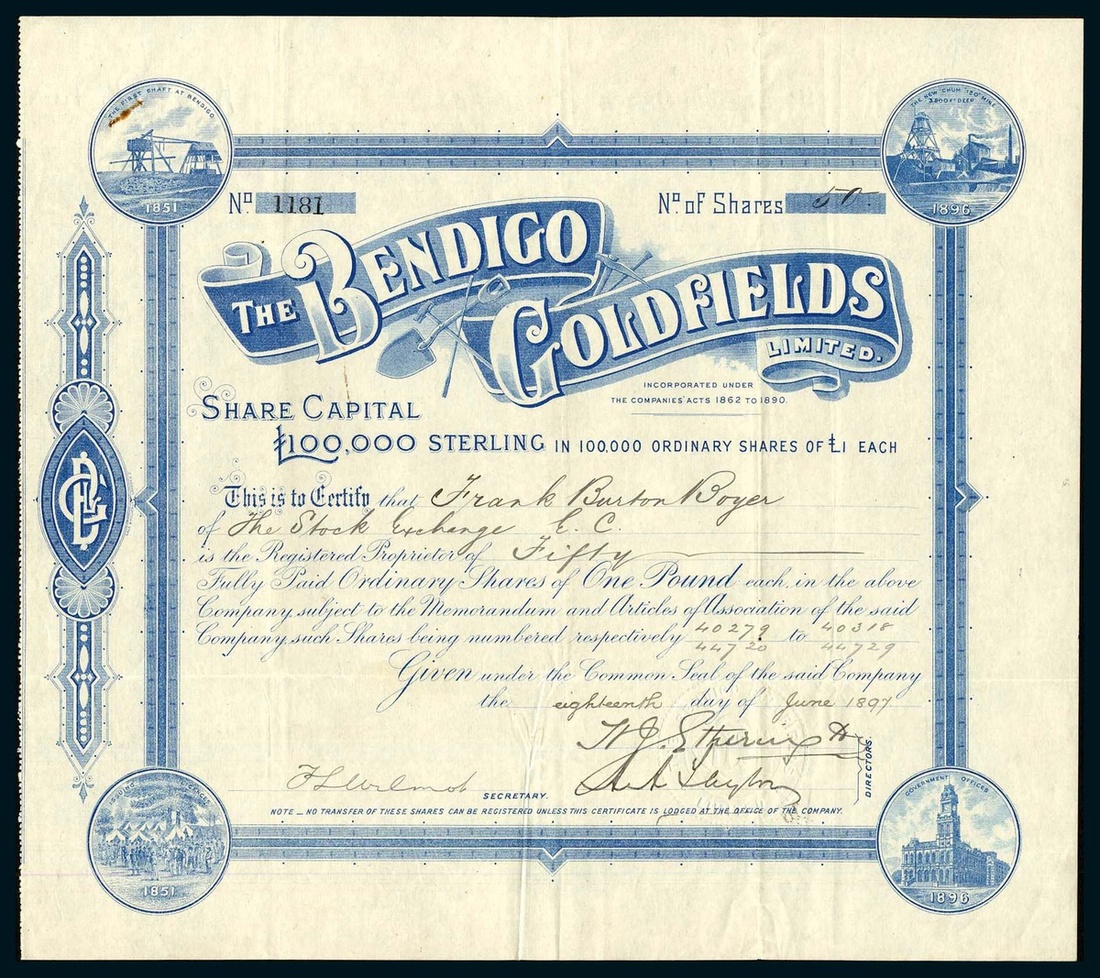 THE FIRST SHAFT AT BENDIGO
1851
THE NEW CHUM "180" MINE
3,200 FT DEEP
1896
No 1181
No. of Shares 50
THE BENDIGO
GOLDFIELDS
LIMITED.
INCORPORATED UNDER
THE COMPANIES' ACTS 1862 TO 1890.
SHARE CAPITAL
£100,000 STERLING IN 100,000 ORDINARY SHARES OF £1 EACH
This is to Certify that Frank Burton Boyer
of The Stock Exchange E.C.
is the Registered Proprietor of Fifty
Fully Paid Ordinary Shares of One Pound each, in the above
Company, subject to the Memorandum and Articles of Association of the said
Company, such Shares being numbered respectively 40279 to 40318
44720 44729
Given under the Common Seal of the said Company
the eighteenth day of June 1897
DIRECTORS.
SECRETARY.
NOTE _ NO TRANSFER OF THESE SHARES CAN BE REGISTERED UNLESS THIS CERTIFICATE IS LODGED AT THE OFFICE OF THE COMPANY.
ISSUING LICENCES
1851
GOVERNMENT OFFICES
1896